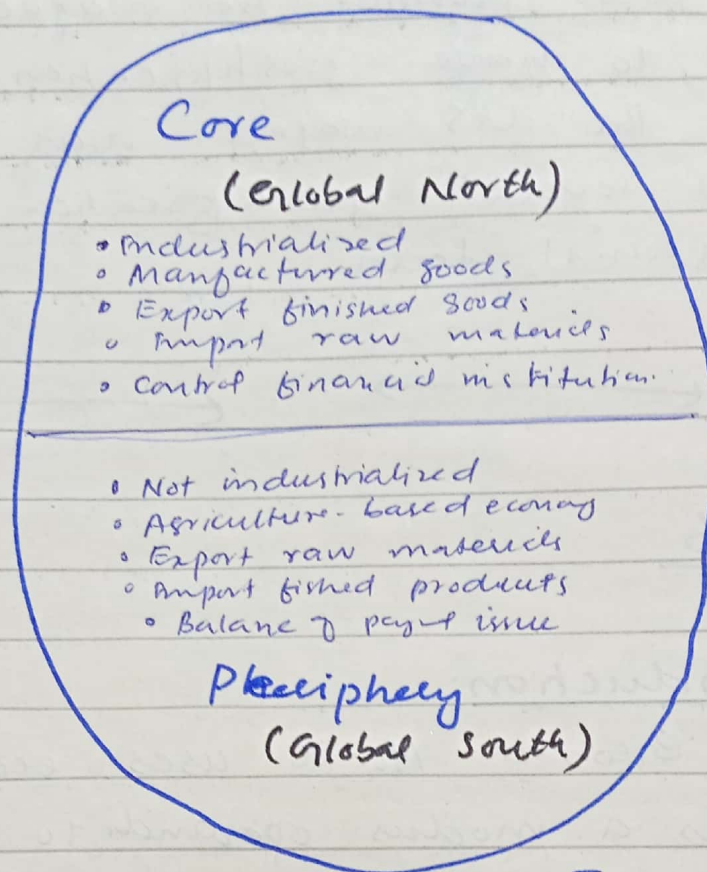 Core
(Global North)
• Industrialized
• Manfactured goods
• Export finished goods
• Import raw materials
• Control financial institution.
• Not industrialized
• Agriculture-based economy
• Export raw materials
• Import fished products
• Balanc of paymt issue
Periphery
(Global South)